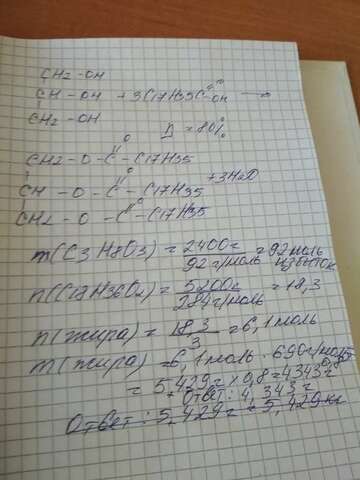 CH2-OH
CH-OH + 3C17H35C-OH →
O
CH2-OH
D = 80%
O
CH2-O-C-C17H35
O
CH-O-C-C17H35 +3H2O
O
CH2-O-C-C17H35
m(C3H8O3) = 2400г = 92моль
92г/моль избыток
n(C17H36O2) = 5200г = 18,3
284г/моль
n(жира) = 18,3 = 6,1моль
3
m(жира) = 6,1моль · 890г/моль
= 5,429г × 0,8 = 4343г
Ответ: 4,343г
Ответ: 5,429г = 5,429кг